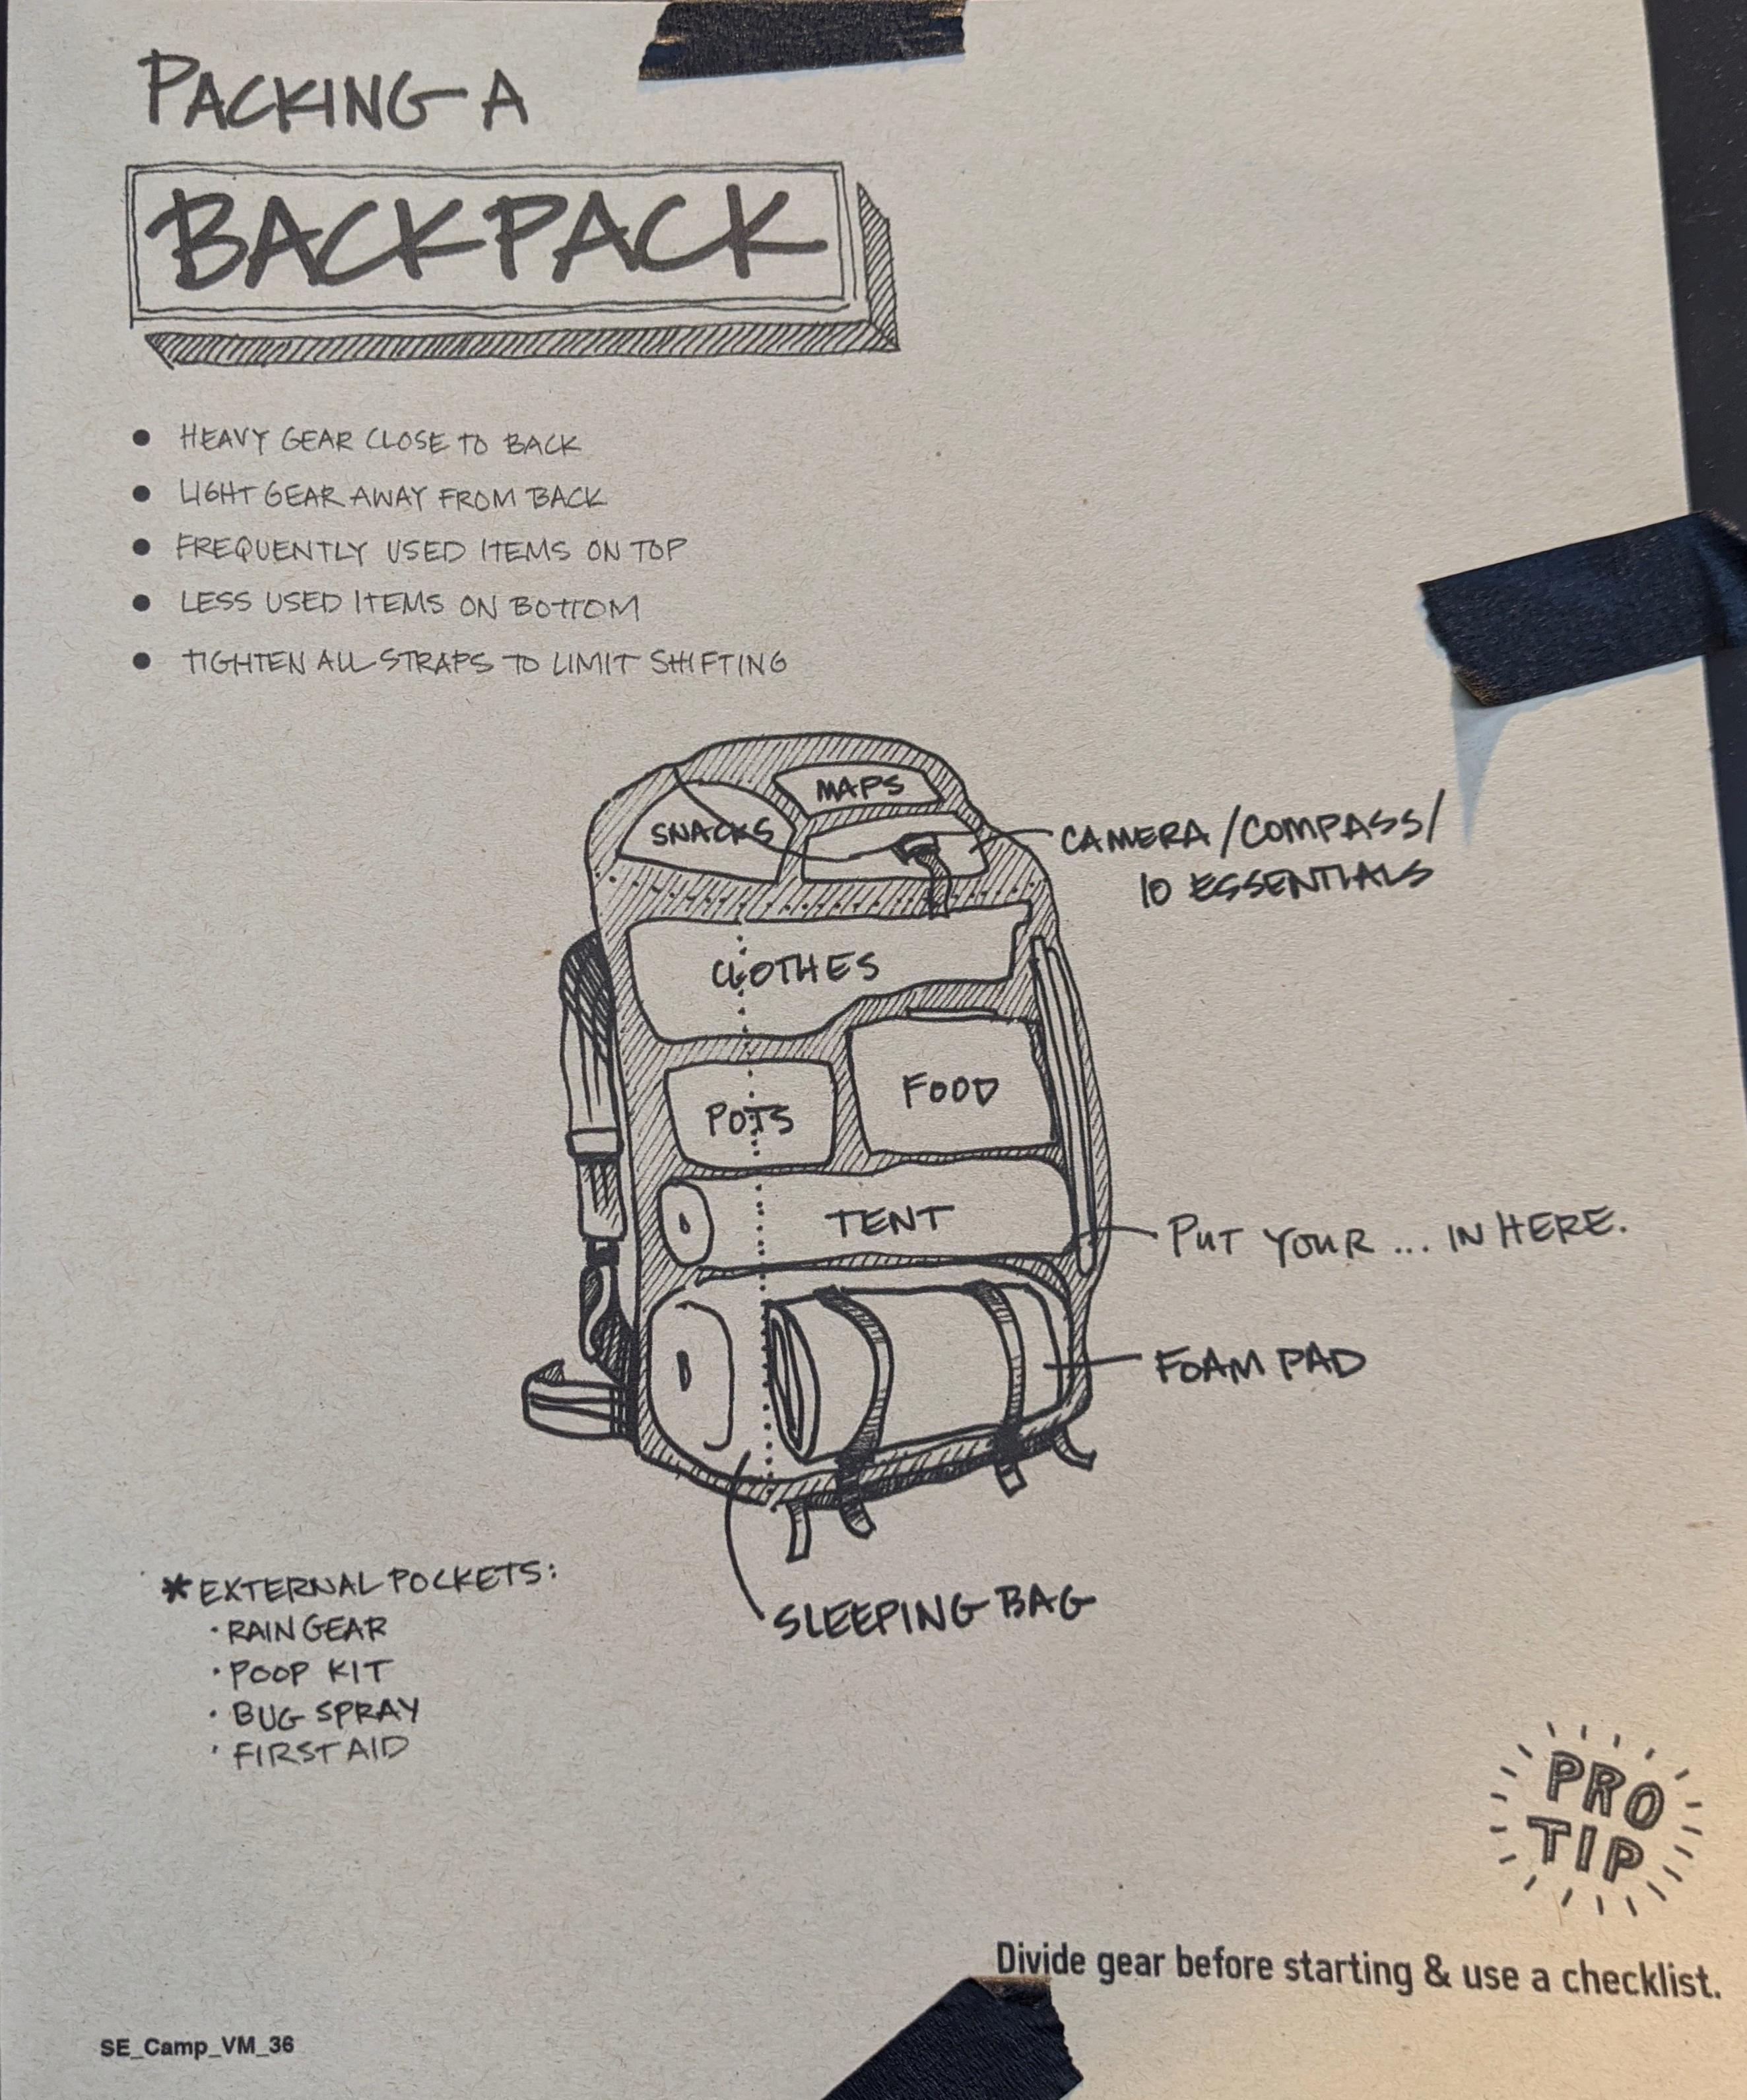 PACKING A
BACKPACK
• HEAVY GEAR CLOSE TO BACK
• LIGHT GEAR AWAY FROM BACK
• FREQUENTLY USED ITEMS ON TOP
• LESS USED ITEMS ON BOTTOM
• TIGHTEN ALL STRAPS TO LIMIT SHIFTING
MAPS
SNACKS
CAMERA/COMPASS/
10 ESSENTIALS
CLOTHES
FOOD
POTS
TENT
PUT YOUR ... IN HERE.
FOAM PAD
SLEEPING BAG
*EXTERNAL POCKETS:
· RAIN GEAR
· POOP KIT
· BUG SPRAY
· FIRST AID
PRO
TIP
Divide gear before starting & use a checklist.
SE_Camp_VM_36